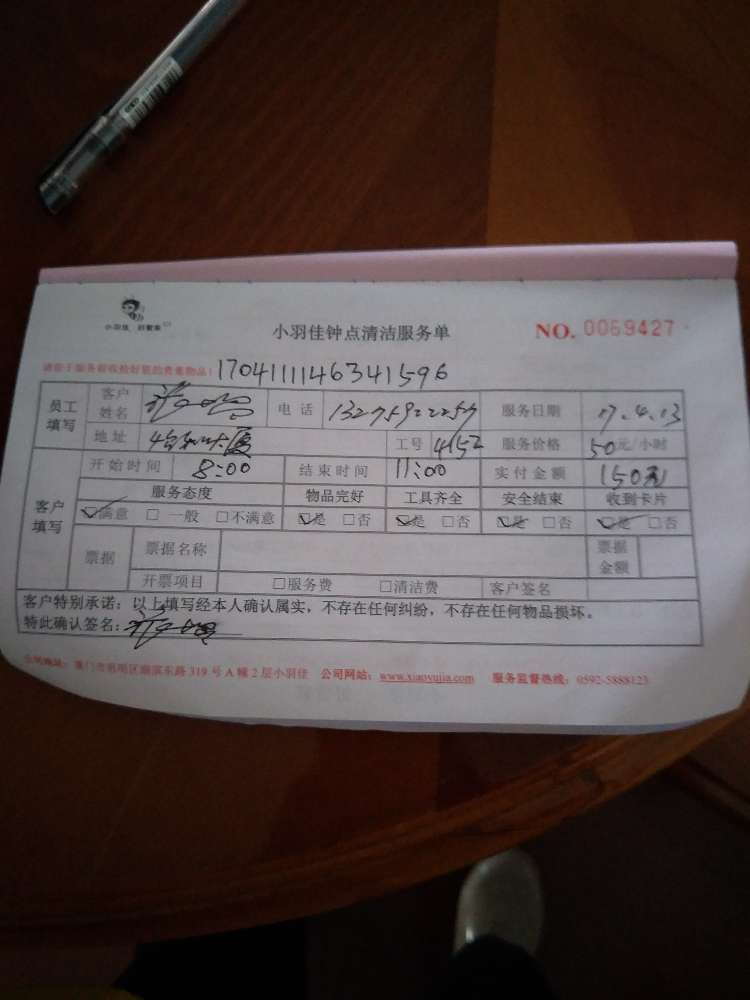 小羽佳
小羽佳钟点清洁服务单 NO. 0069427
请在于服务前收拾好您的贵重物品! 1704111146341596
员工填写 客户姓名 电话 服务日期 17.4.13
地址 工号 4152 服务价格 50元/小时
客户填写 开始时间 8:00 结束时间 11:00 实付金额 150元
服务态度 物品完好 工具齐全 安全结束 收到卡片
满意 一般 不满意 是 否 是 否 是 否 是 否
票据 票据名称 票据金额
开票项目 服务费 清洁费 客户签名
客户特别承诺：以上填写经本人确认属实，不存在任何纠纷，不存在任何物品损坏。
特此确认签名：
公司地址：厦门市思明区湖滨东路319号A幢2层小羽佳 公司网站：www.xiaoyujia.com 服务监督热线：0592-5888123